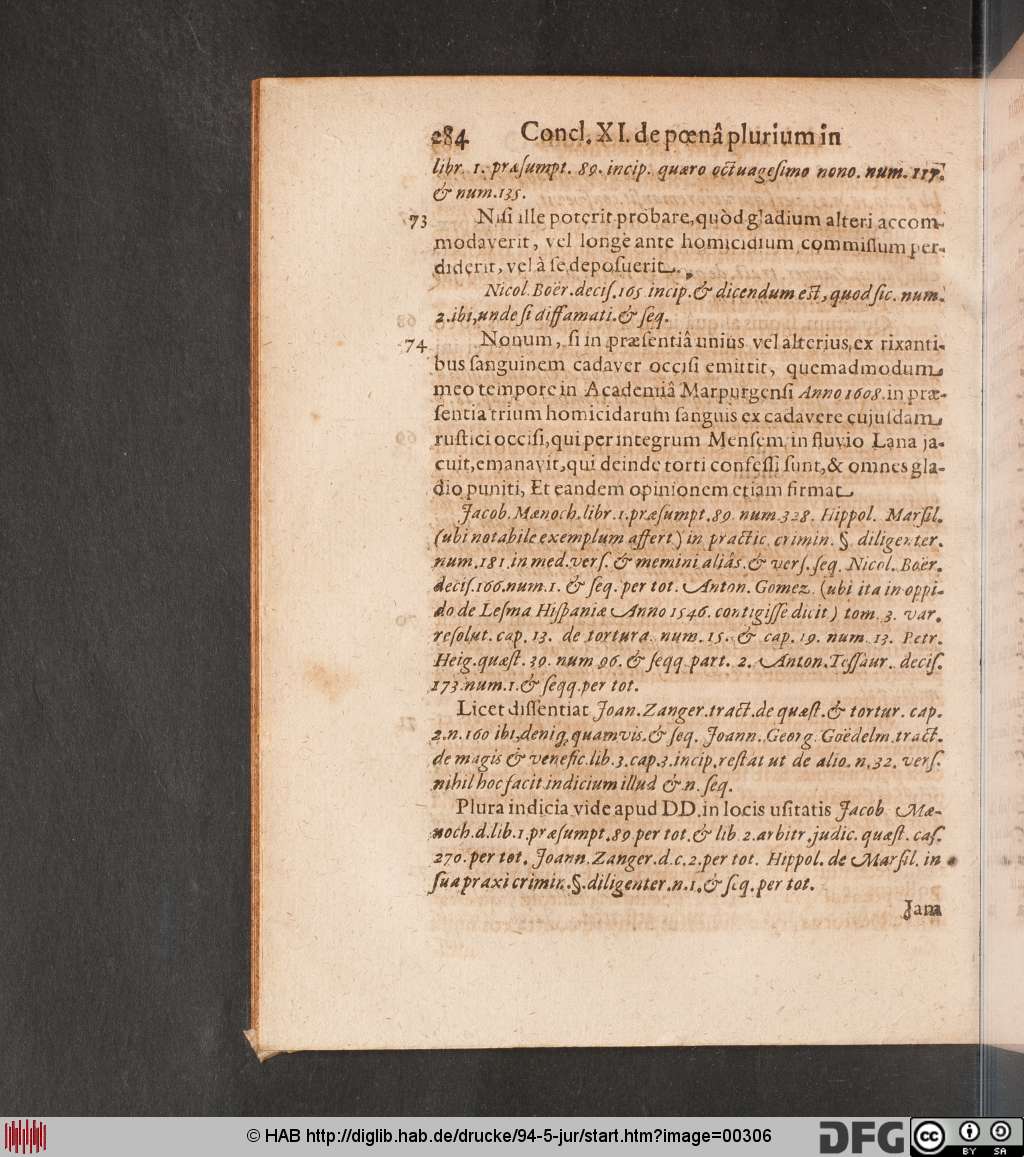 284 Concl. XI. de pœnâ plurium in
libr. 1. præſumpt. 89. incip. quæro octuageſimo nono. num. 117.
& num. 135.
73 Niſi ille poterit probare, quòd gladium alteri accom-
modaverit, vel longè ante homicidium commiſſum per-
diderit, vel à ſe depoſuerit.
Nicol. Boër. deciſ. 165. incip. & dicendum eſt, quod ſic. num.
2. ibi, unde ſi diffamati. & ſeq.
74 Nonum, ſi in præſentiâ unius vel alterius, ex rixanti-
bus ſanguinem cadaver occiſi emittit, quemadmodum
meo tempore in Academiâ Marpurgenſi Anno 1608. in præ-
ſentia trium homicidarum ſanguis ex cadavere cujuſdam
ruſtici occiſi, qui per integrum Menſem, in fluvio Lana ja-
cuit, emanavit, qui deinde torti confeſſi ſunt, & omnes gla-
dio puniti, Et eandem opinionem etiam firmat
Jacob. Mænoch. libr. 1. præſumpt. 89. num. 328. Hippol. Marſil.
(ubi notabile exemplum affert) in practic. crimin. §. diligenter.
num. 181. in med. verſ. & memini aliâs. & verſ. ſeq. Nicol. Boër.
deciſ. 166. num. 1. & ſeq. per tot. Anton. Gomez. (ubi ita in oppi-
do de Leſma Hiſpaniæ Anno 1546. contigiſſe dicit) tom. 3. var.
reſolut. cap. 13. de tortura. num. 15. & cap. 19. num. 13. Petr.
Heig. quæſt. 39. num 96. & ſeqq. part. 2. Anton. Teſſaur. deciſ.
173. num. 1. & ſeqq. per tot.
Licet diſſentiat Joan. Zanger. tract. de quæſt. & tortur. cap.
2. n. 160 ibi, deniq, quamvis. & ſeq. Joann. Georg. Goëdelm. tract.
de magis & venefic. lib. 3. cap. 3. incip. reſtat ut de alio. n. 32. verſ.
nihil hoc facit indicium illud & n. ſeq.
Plura indicia vide apud DD. in locis uſitatis Jacob Mæ-
noch. d. lib. 1. præſumpt. 89 per tot. & lib. 2. arbitr. judic. quæſt. caſ.
270. per tot. Joann. Zanger. d. c. 2. per tot. Hippol. de Marſil. in
ſua praxi crimin. §. diligenter. n. 1. & ſeq. per tot.
Jam
© HAB http://diglib.hab.de/drucke/94-5-jur/start.htm?image=00306
DFG
cc BY SA